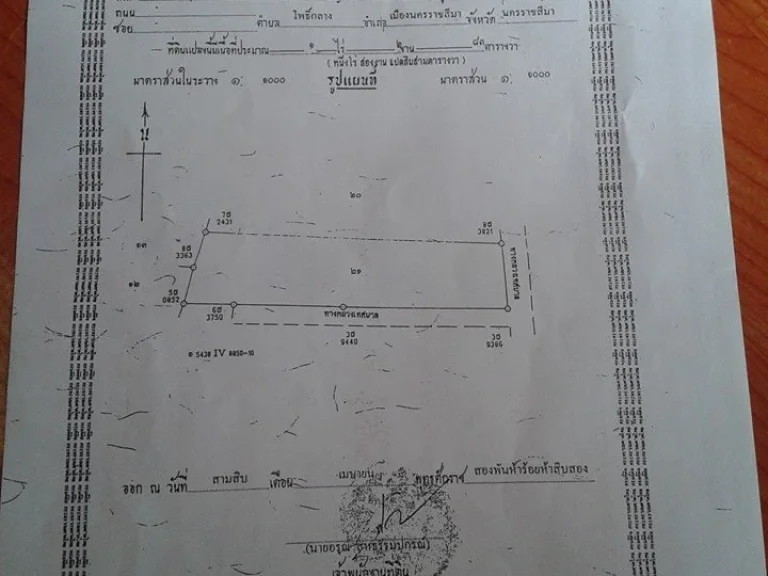 ถนน
ซอย ตำบล โพธิ์กลาง อำเภอ เมืองนครราชสีมา จังหวัด นครราชสีมา
ที่ดินแปลงนี้เนื้อที่ประมาณ ๑ ไร่ ๒ งาน ๘๓ ตารางวา
( หนึ่งไร่ สองงาน แปดสิบสามตารางวา )
มาตราส่วนในระวาง ๑: ๑๐๐๐ รูปแผนที่ มาตราส่วน ๑: ๑๐๐๐
น
๒๐
7ฮ
2431
3821
๑๓
3363
๒๑
ทางหลวงเทศบาล
๑๒
5ฮ
0852
6ฮ
3750
ทางหลวงเทศบาล
3ฮ
9440
3ฮ
9386
5438 IV 8850-10
ออก ณ วันที่ สามสิบ เดือน เมษายน พุทธศักราช สองพันห้าร้อยห้าสิบสอง
เจ้าพนักงานที่ดิน